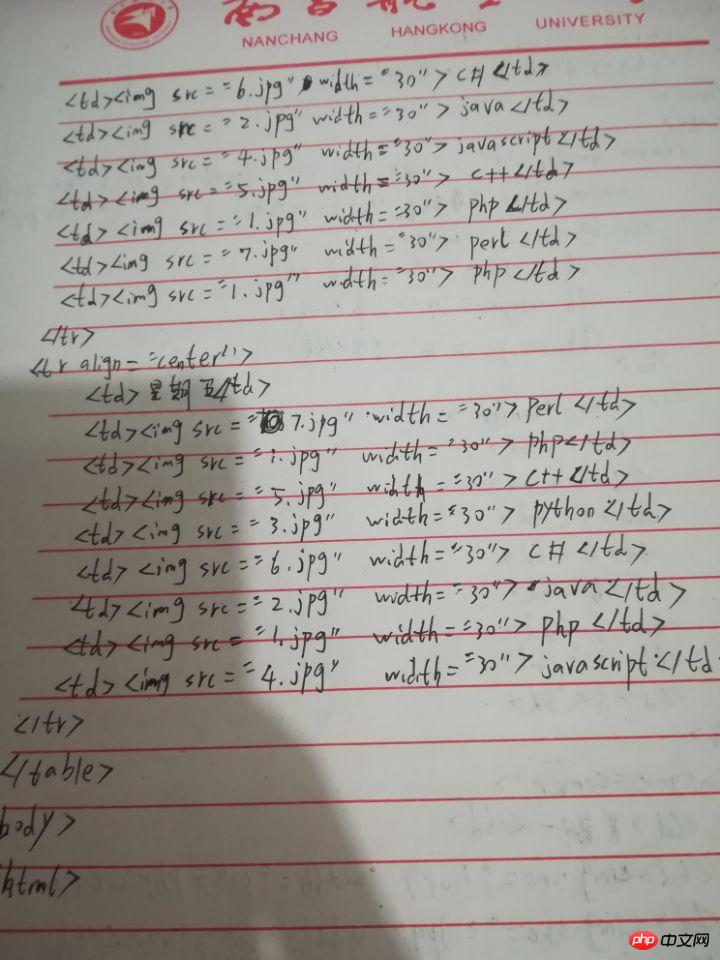 NANCHANG HANGKONG UNIVERSITY
<td><img src="6.jpg" width="30"> C# </td>
<td><img src="2.jpg" width="30"> java </td>
<td><img src="4.jpg" width="30"> javascript </td>
<td><img src="5.jpg" width="30"> C++ </td>
<td><img src="1.jpg" width="30"> php </td>
<td><img src="7.jpg" width="30"> perl </td>
<td><img src="1.jpg" width="30"> php </td>
</tr>
<tr align="center">
<td>星期五</td>
<td><img src="7.jpg" width="30"> perl </td>
<td><img src="1.jpg" width="30"> php</td>
<td><img src="5.jpg" width="30"> C++ </td>
<td><img src="3.jpg" width="30"> python </td>
<td><img src="6.jpg" width="30"> C# </td>
<td><img src="2.jpg" width="30"> java </td>
<td><img src="1.jpg" width="30"> php </td>
<td><img src="4.jpg" width="30"> javascript </td
</tr>
</table>
body>
html>
php 中文网